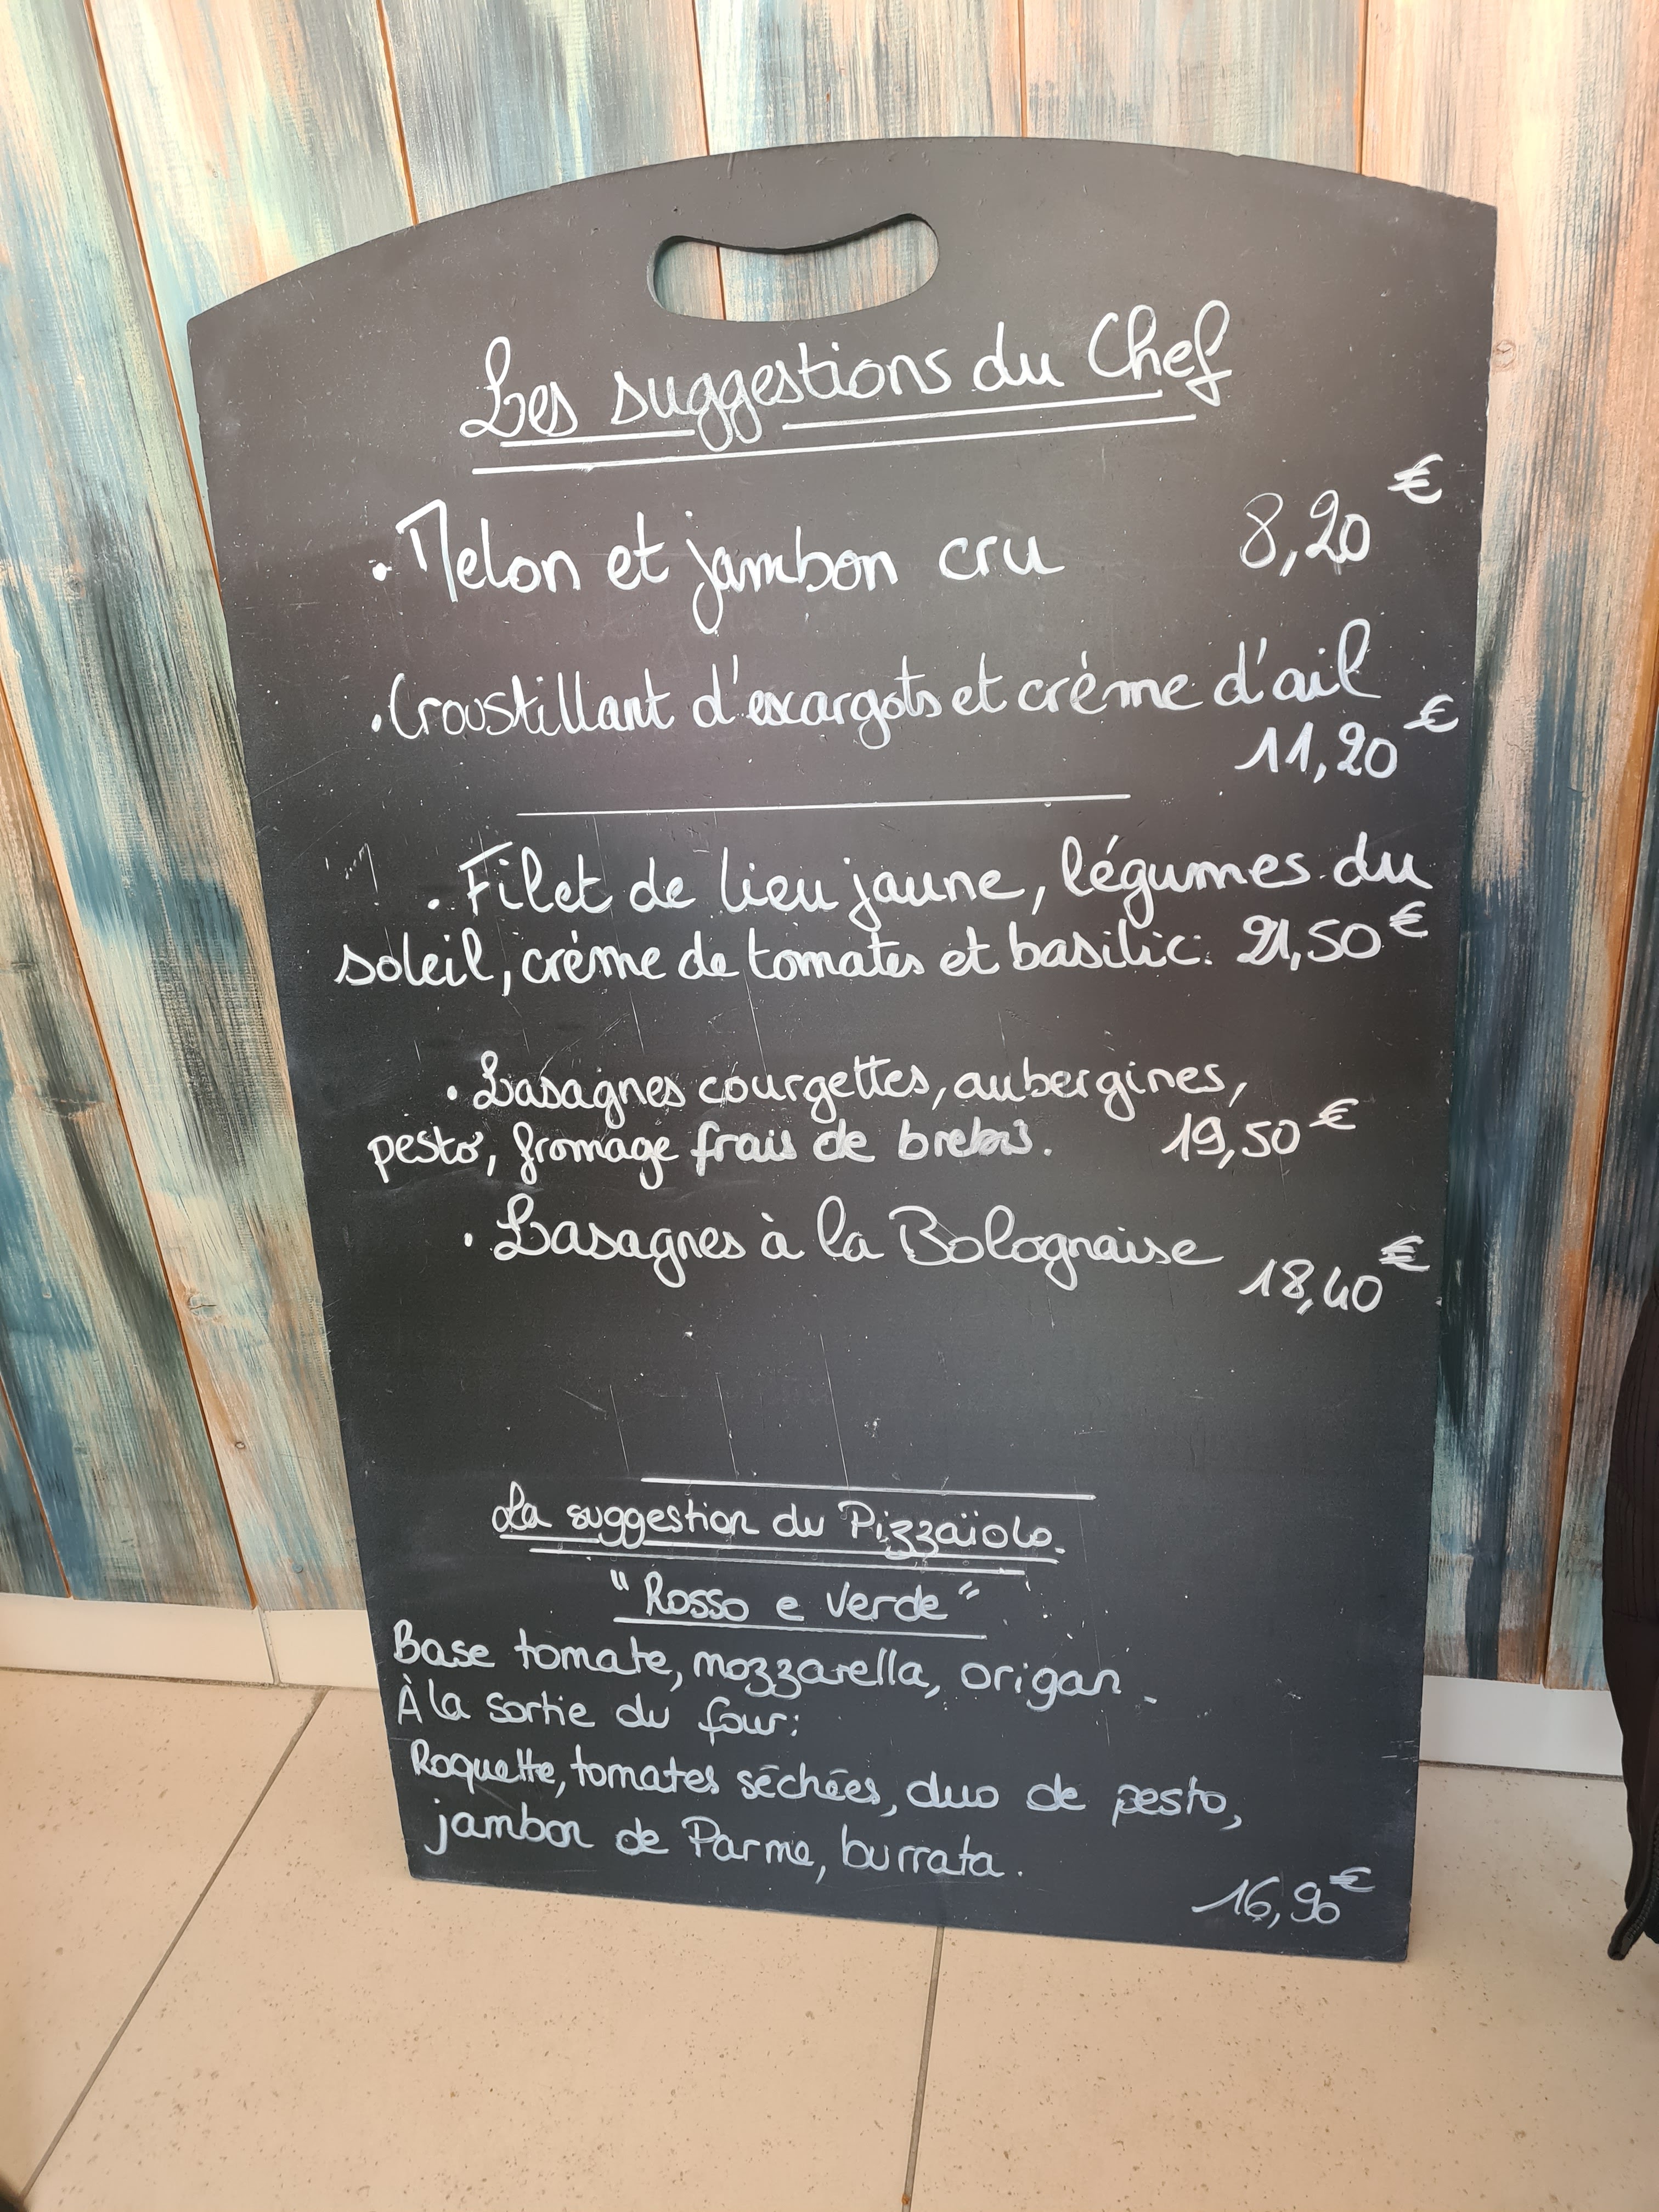 Les suggestions du Chef
. Melon et jambon cru 8,20€
. Croustillant d'escargots et crème d'ail
11,20€
. Filet de lieu jaune, légumes du
soleil, crème de tomates et basilic. 21,50€
. Lasagnes courgettes, aubergines,
pesto, fromage frais de brebis. 19,50€
. Lasagnes à la Bolognaise
18,40€
La suggestion du Pizzaïolo.
"Rosso e Verde"
Base tomate, mozzarella, origan.
À la sortie du four:
Roquette, tomates séchées, duo de pesto,
jambon de Parme, burrata.
16,90€